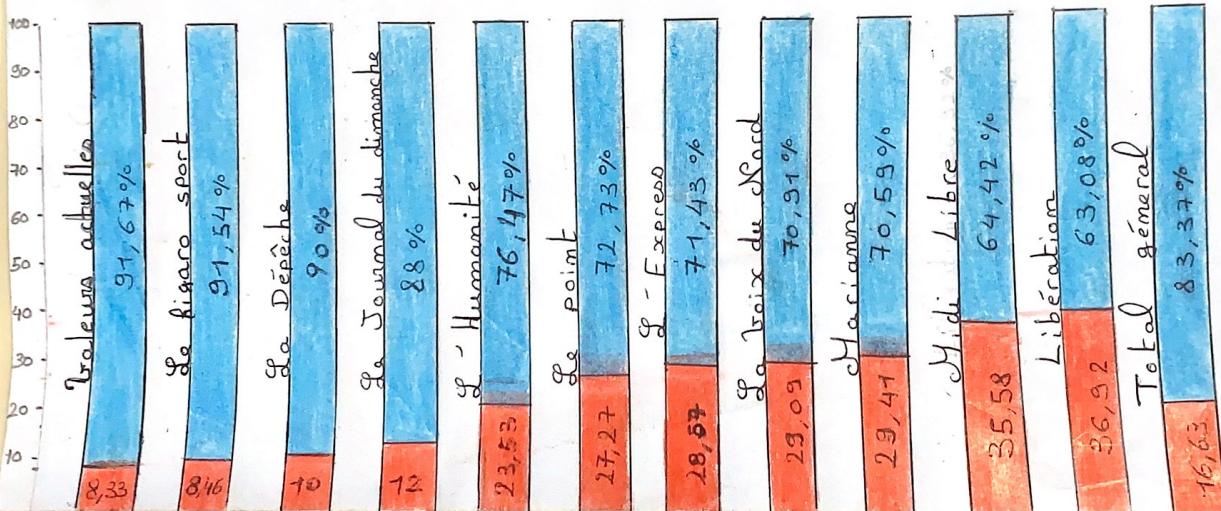 100
90
80
70
60
50
40
30
20
10
Valeurs actuelles
91,67%
8,33
Le Figaro sport
91,54%
8,46
La Dépêche
90%
10
Le Journal du dimanche
88%
12
L'Humanité
76,47%
23,53
Le point
72,73%
27,27
L'Express
71,43%
28,57
La Voix du Nord
70,91%
29,09
Marianne
70,59%
29,41
Midi Libre
64,42%
35,58
Libération
63,08%
36,92
Total général
83,37%
16,63